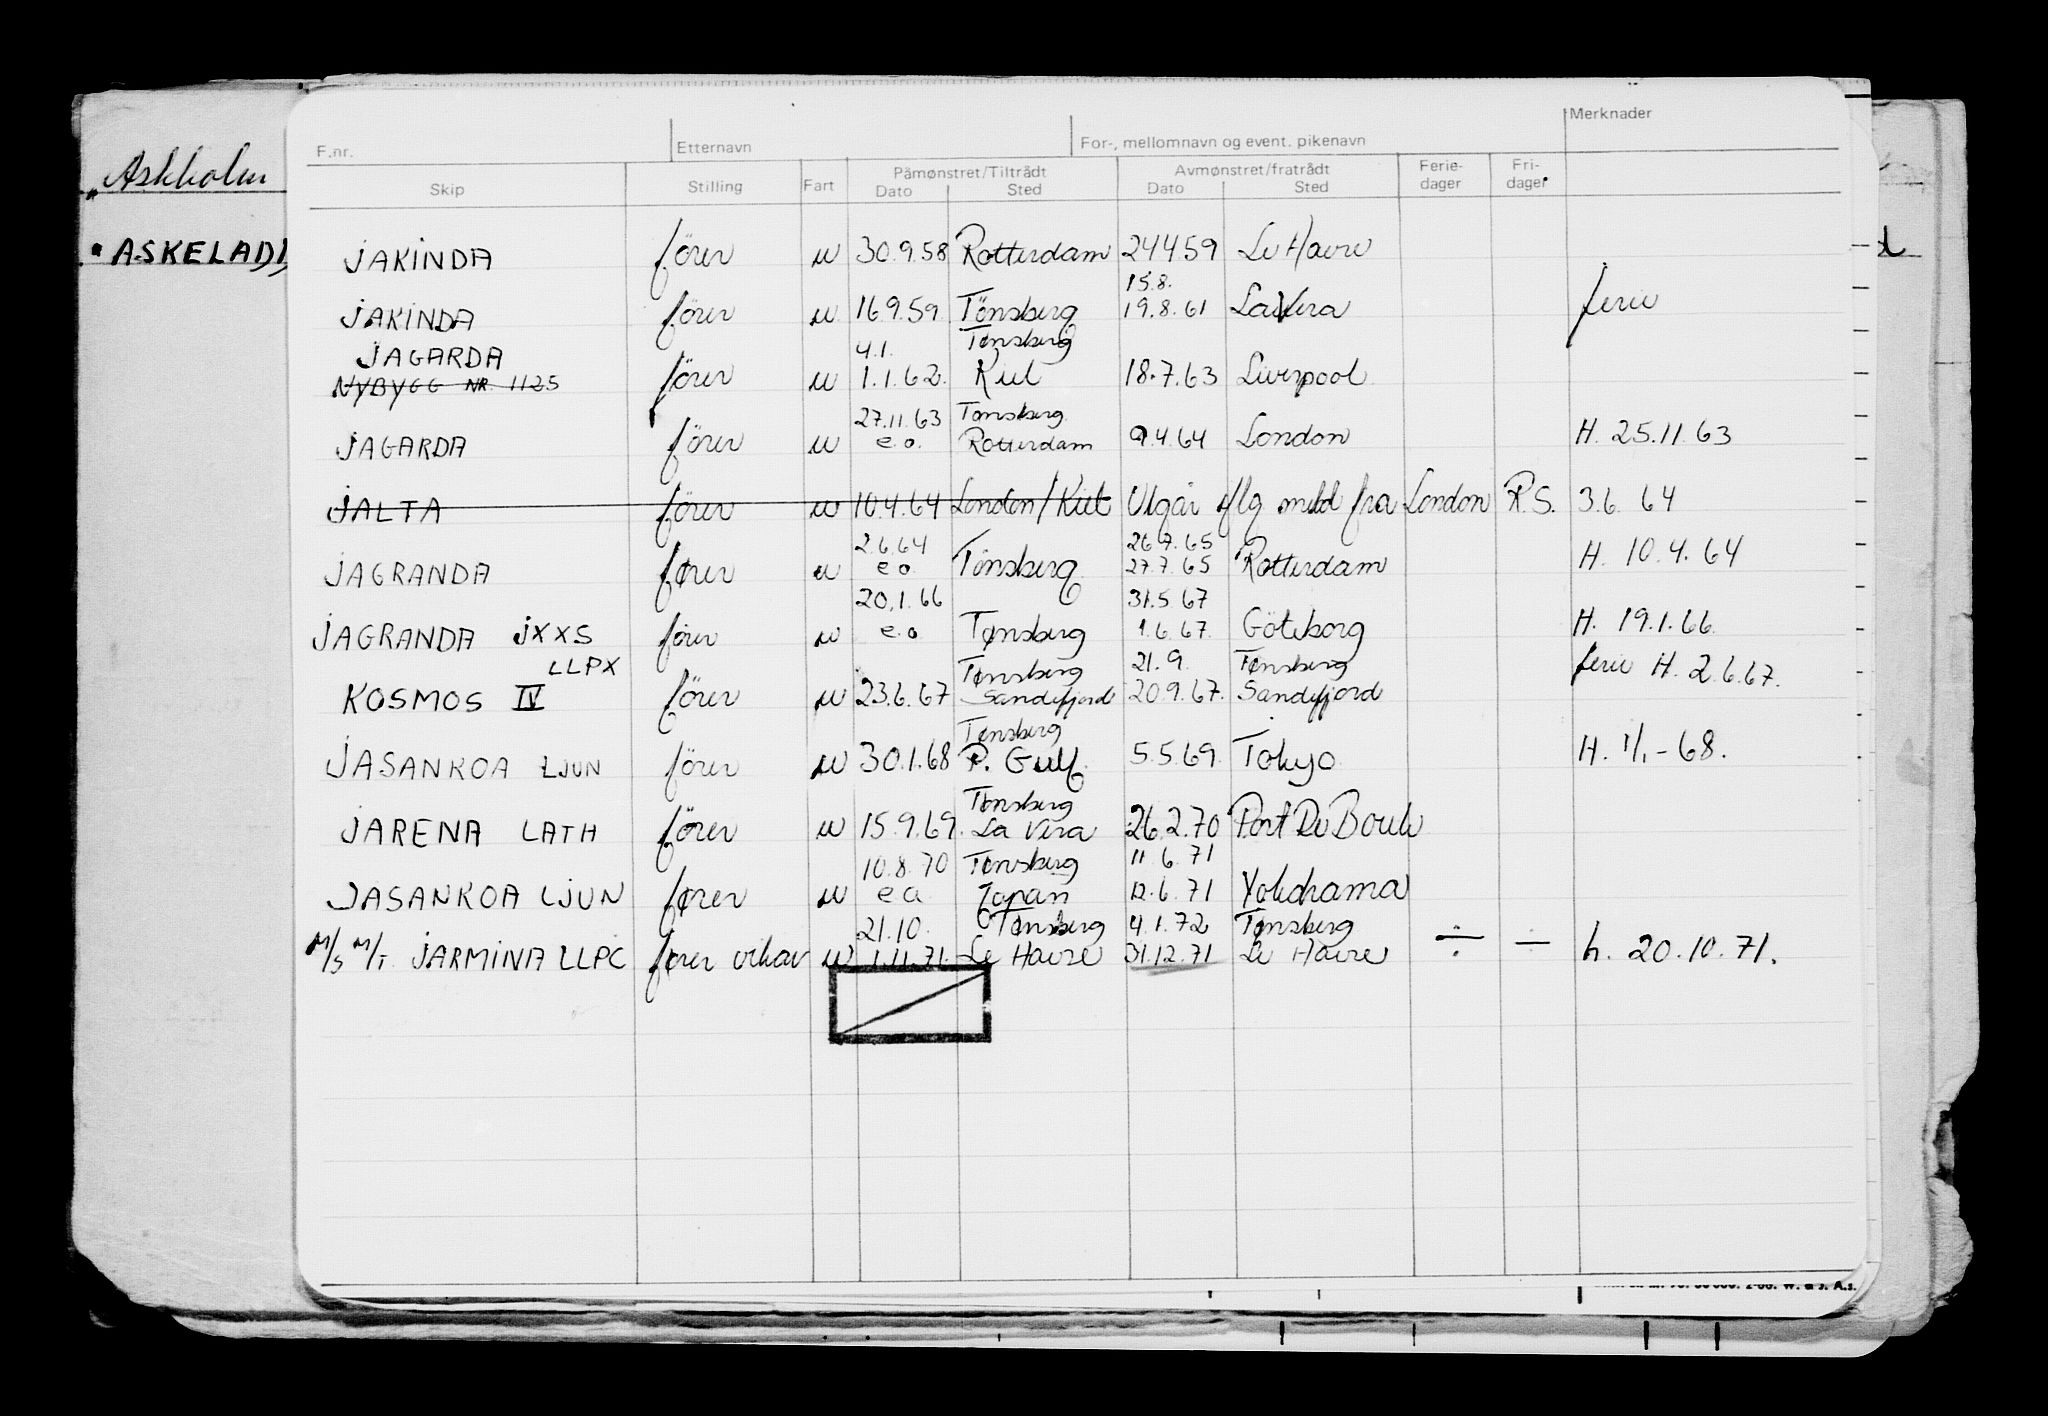 Askholm
F.nr. Etternavn For-, mellomnavn og event. pikenavn Merknader
Skip Stilling Fart Påmønstret/Tiltrådt Dato Sted Avmønstret/fratrådt Dato Sted Ferie-dager Fri-dager
• ASKELADD
JAKINDA förer u 30.9.58 Rotterdam 24459 Le Havre
15.8.
JAKINDA förer u 16.9.59 Tönsberg 19.8.61 La Vera ferie
JAGARDA 4.1. Tønsberg
NYBYGG NR. 1125 förer u 1.1.62. Kiel 18.7.63 Liverpool
27.11.63 Tønsberg
JAGARDA förer u e.o. Rotterdam 9.4.64 London H. 25.11.63
JALTA förer u 10.4.64 London/Kiel Utgår iflg meld fra London R.S. 3.6.64
2.6.64 26.7.65
JAGRANDA fører u e.o Tönsberg 27.7.65 Rotterdam H. 10.4.64
20.1.66 31.5 67
JAGRANDA JXXS förer u e.o Tønsberg 1.6.67. Göteborg H. 19.1.66.
LLPX Tønsberg 21.9. Tønsberg ferie H. 2.6.67.
KOSMOS IV förer u 23.6.67 Sandefjord 20.9.67. Sandefjord
Tønsberg
JASANKOA LJUN förer u 30.1.68 P. Gulf. 5.5.69. Tokyo H. 1/1-68.
Tønsberg
JARENA LATH förer u 15.9.69. La Vera 26.2.70 Port De Bouk
10.8.70 Tønsberg 11.6.71
JASANKOA LJUN fører u e.o Japan 12.6.71 Yokohama
21.10. Tønsberg 4.1.72 Tønsberg
M/S M/T JARMINA LLPC fører vikar u 1.11.71. Le Havre 31.12.71 Le Havre ÷ — h. 20.10.71.